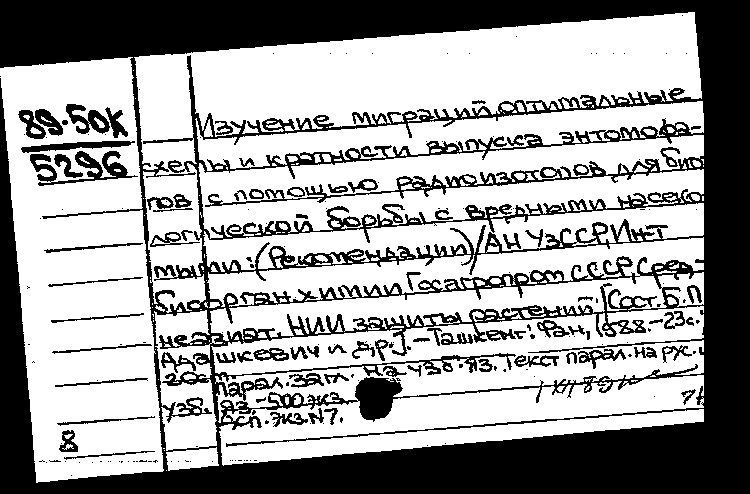 89-50К
5296
Изучение миграций, оптимальные
схемы и кратности выпуска энтомофа-
гов с помощью радиоизотопов для био
логической борьбы с вредными насеко
мыми: (Рекомендации) / АН УзССР, Ин-т
биоорган. химии, Госагропром СССР, Сред-
неазиат. НИИ защиты растений; [Сост. Б.П.
Адашкевич и др.]. - Ташкент: Фан, 1988. - 23с.;
20см.
Парал. загл. на узб. яз. Текст парал. на рус. и
узб. яз. - 500 экз.
Дсп. экз. N7.
8